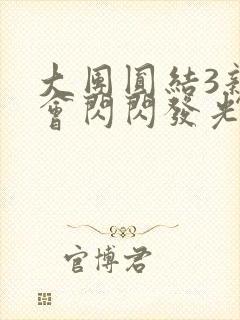 大团圓結3新
會閃閃發光
官博君